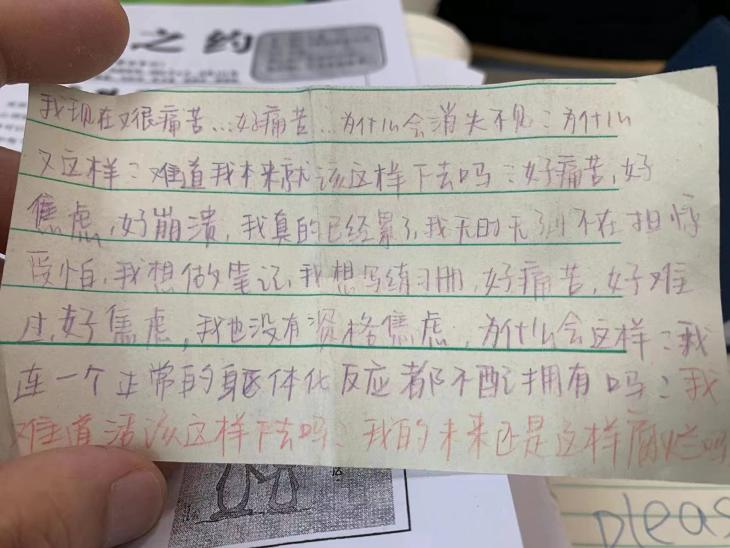 之约
我现在又很痛苦...好痛苦...为什么会消失不见？为什么
又这样？难道我本来就该这样下去吗？好痛苦,好
焦虑,好崩溃,我真的已经累了,我无时无刻不在担惊
受怕,我想做笔记,我想写练习册,好痛苦,好难
过,好焦虑,我也没有资格焦虑,为什么会这样？我
连一个正常的躯体化反应都不配拥有吗？我
难道活该这样下去吗？我的未来还是这样腐烂吗
Pleas